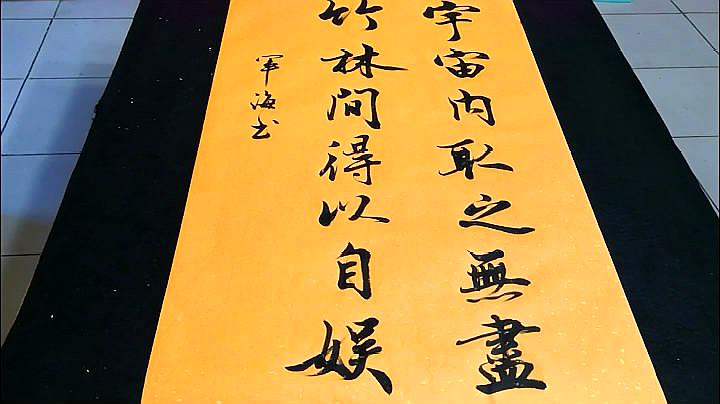 宇宙內取之無盡
竹林間得以自娱
軍海书